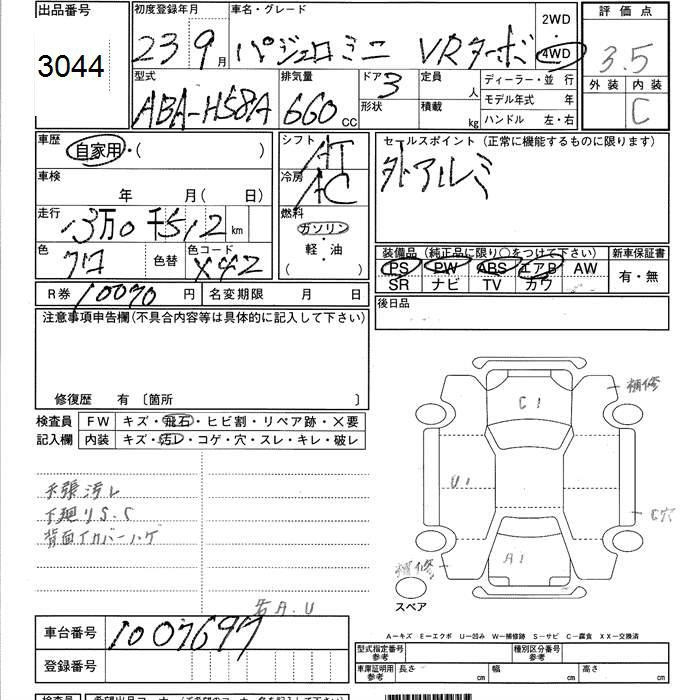 出品番号
3044
初度登録年月
23 9月
車名・グレード
パジェロミニ VRターボ
2WD
4WD
評価点
3.5
外装 内装
C
型式
ABA-H58A
排気量
660 CC
ドア
3
形状
定員
人
積載
kg
ディーラー・並行
モデル年式 年
ハンドル 左・右
車歴
自家用・( )
車検
年 月( 日)
走行
13万0千512 km
色
クロ
色替
色コード
X42
シフト
AT
冷房
AC
燃料
ガソリン
・
軽・油
( )
セールスポイント(正常に機能するものに限ります)
外アルミ
装備品(純正品に限り○をつけて下さい)
PS PW ABS エアB AW
SR ナビ TV カワ
新車保証書
有・無
R券 10070 円
名変期限 月 日
後日品
注意事項申告欄(不具合内容等は具体的に記入して下さい)
修復歴 有 〔箇所 〕
検査員
記入欄
FW キズ・飛石・ヒビ割・リペア跡・×要
内装 キズ・汚レ・コゲ・穴・スレ・キレ・破レ
天張汚レ
下廻りS.C
背面タイヤカバーハゲ
右A.U
C1
U1
A1
補修
C穴
補修
スペア
A-キズ E-エクボ U-凹み W-補修跡 S-サビ C-腐食 XX-交換済
車台番号
1007697
登録番号
型式指定番号
参考
種別区分番号
参考
車庫証明用
参考
長さ cm
幅 cm
高さ cm
検査員